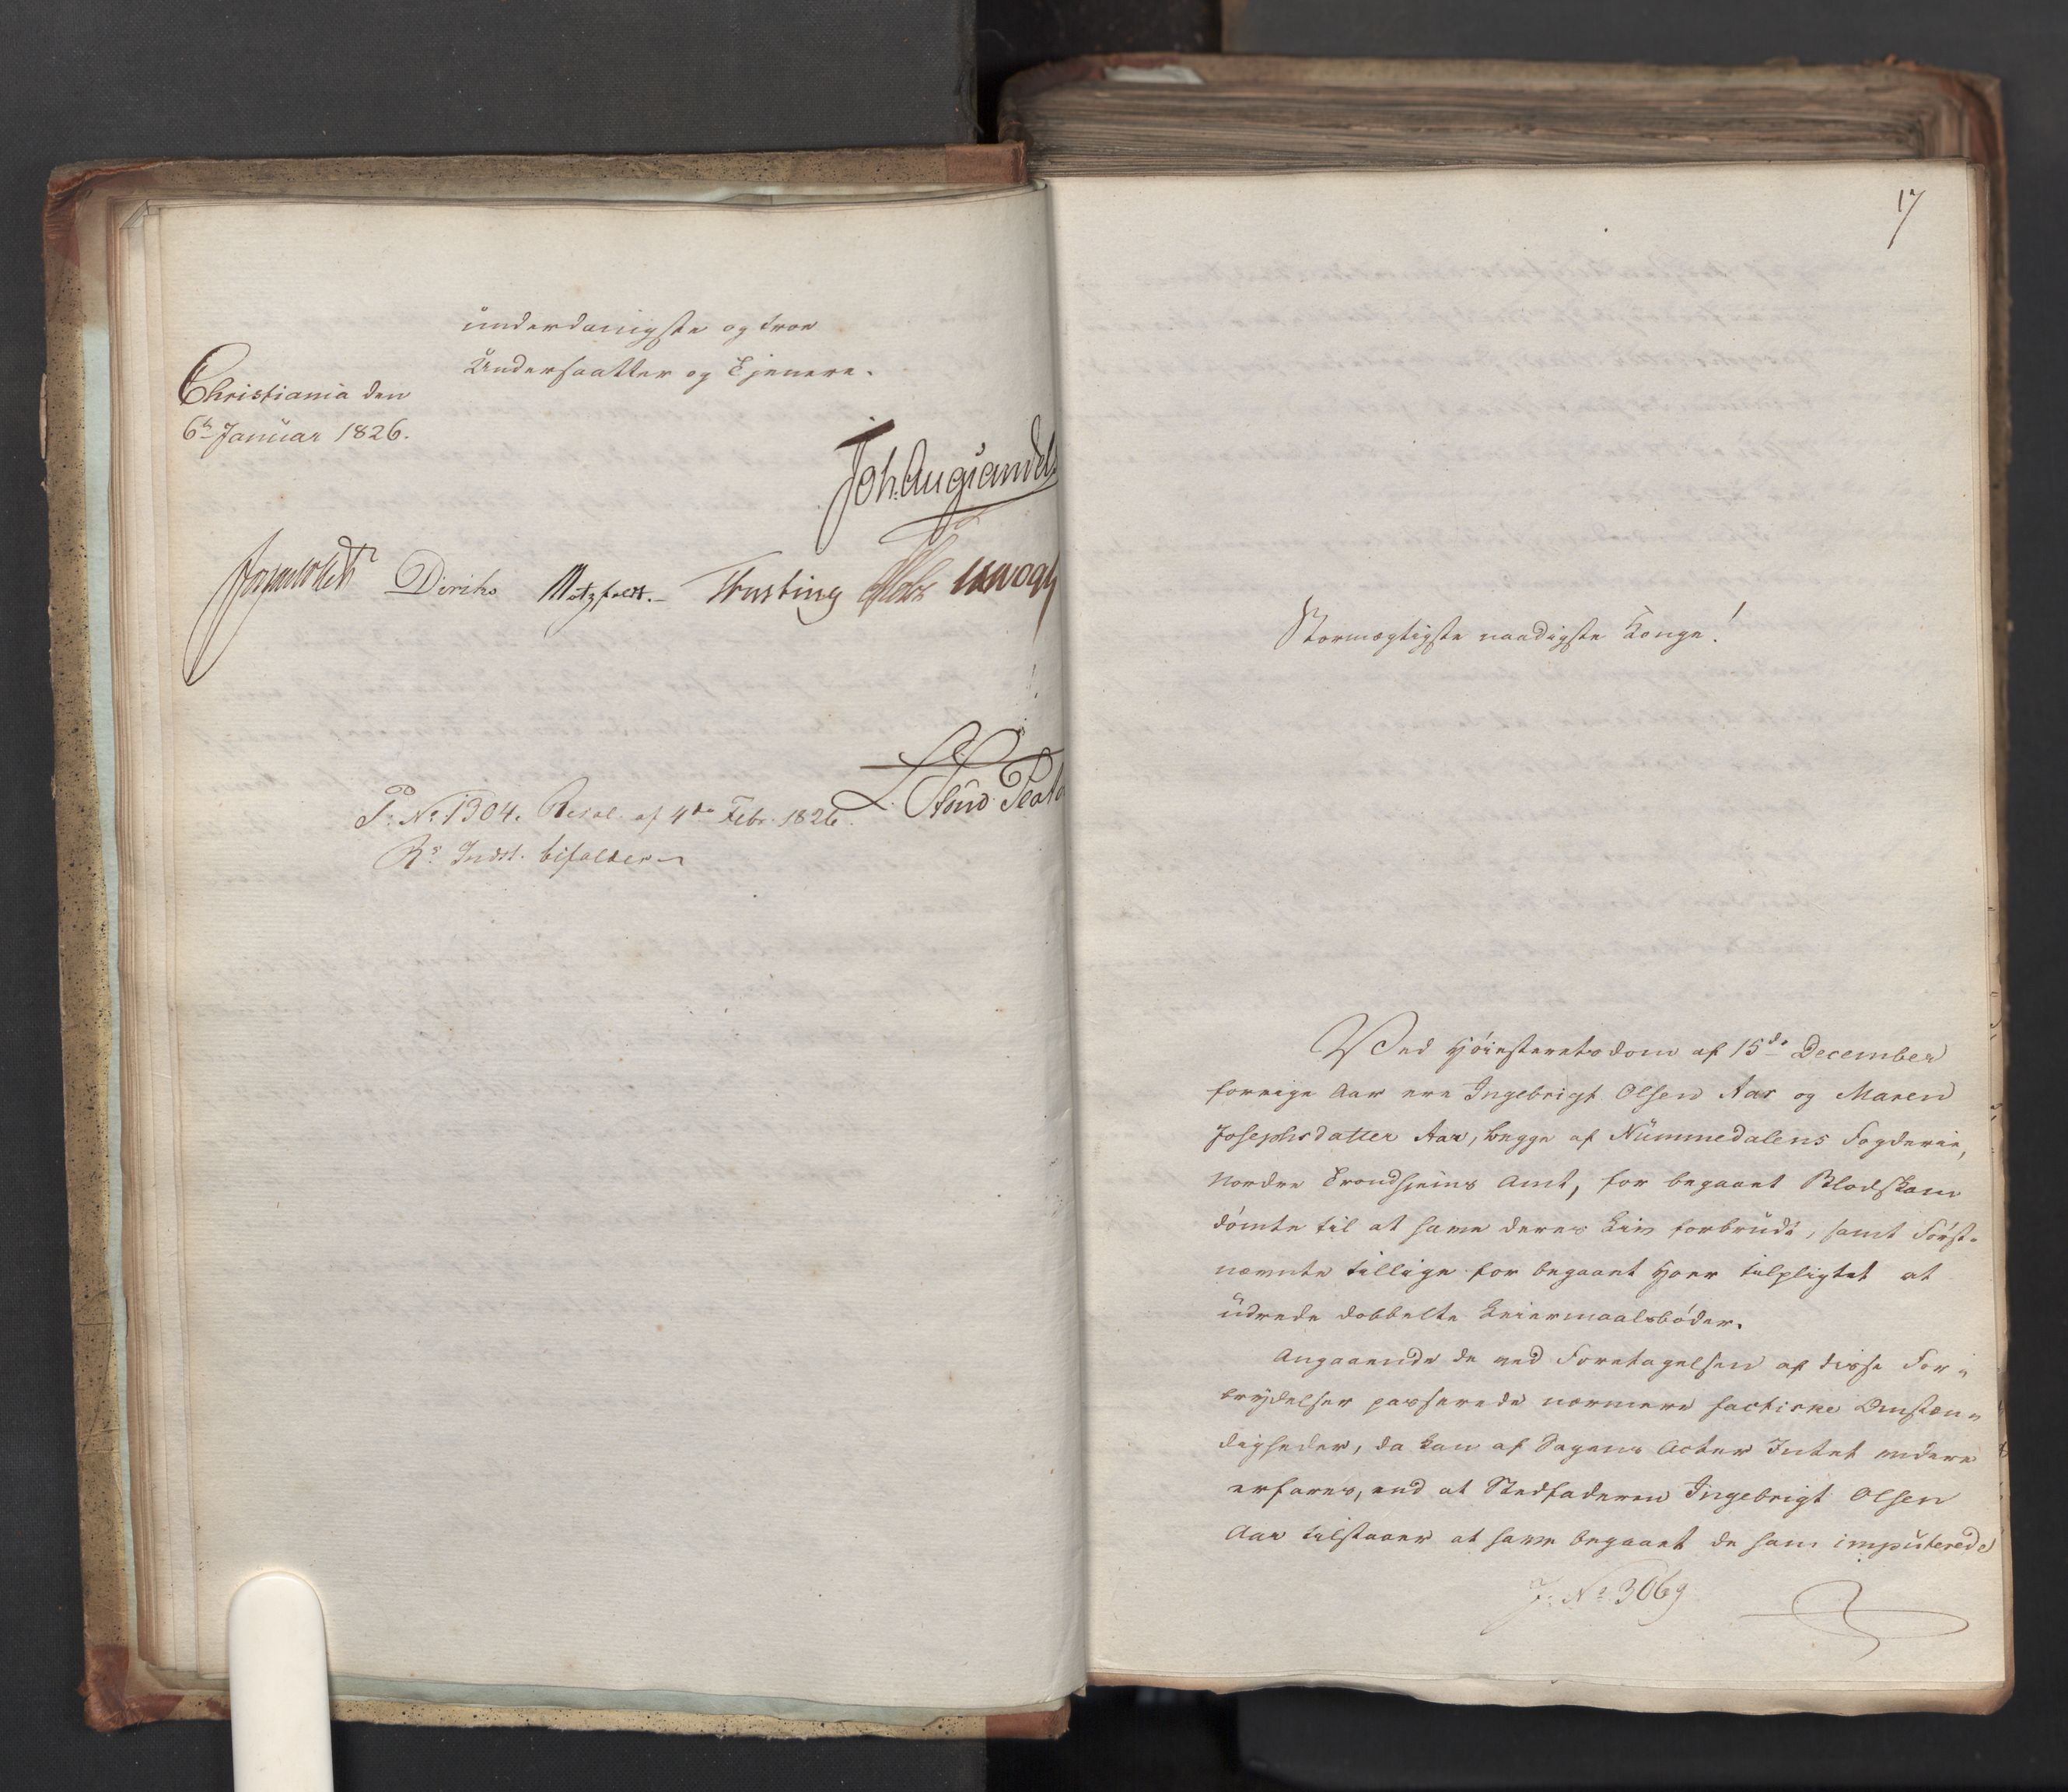 underdanigste og troe
Undersaatter og Tjenere.
Christiania den
6te Januar 1826.
Joh. Aug. Sandels
Sommerhielm Diriks Motzfeldt. Krusting Holst Vogt
L. Stoud Plato
P: No 1304. Resol. af 4de Febr. 1826.
Rs Indst. bifaldes
17
Stormægtigste naadigste Konge!
Ved Höiesteretsdom af 15de December
forrige Aar ere Ingebrigt Olsen Aar og Maren
Josephsdatter Aar, begge af Nummedalens Fogderie,
Nordre Trondhjems Amt, for begaaet Blodskam
dömte til at have deres Liv forbrudt, samt Först-
nævnte tillige for begaaet Hoer tilpligtet at
udrede dobbelte Leiermaalsböder.
Angaaende de ved Foretagelsen af disse For-
brydelser passerede nærmere factiske Omstæn-
digheder, da kan af Sagens Acter Intet videre
erfares, end at Stedfaderen Ingebrigt Olsen
Aar tilstaaer at have begaaet de ham imputerede
J: No 3069